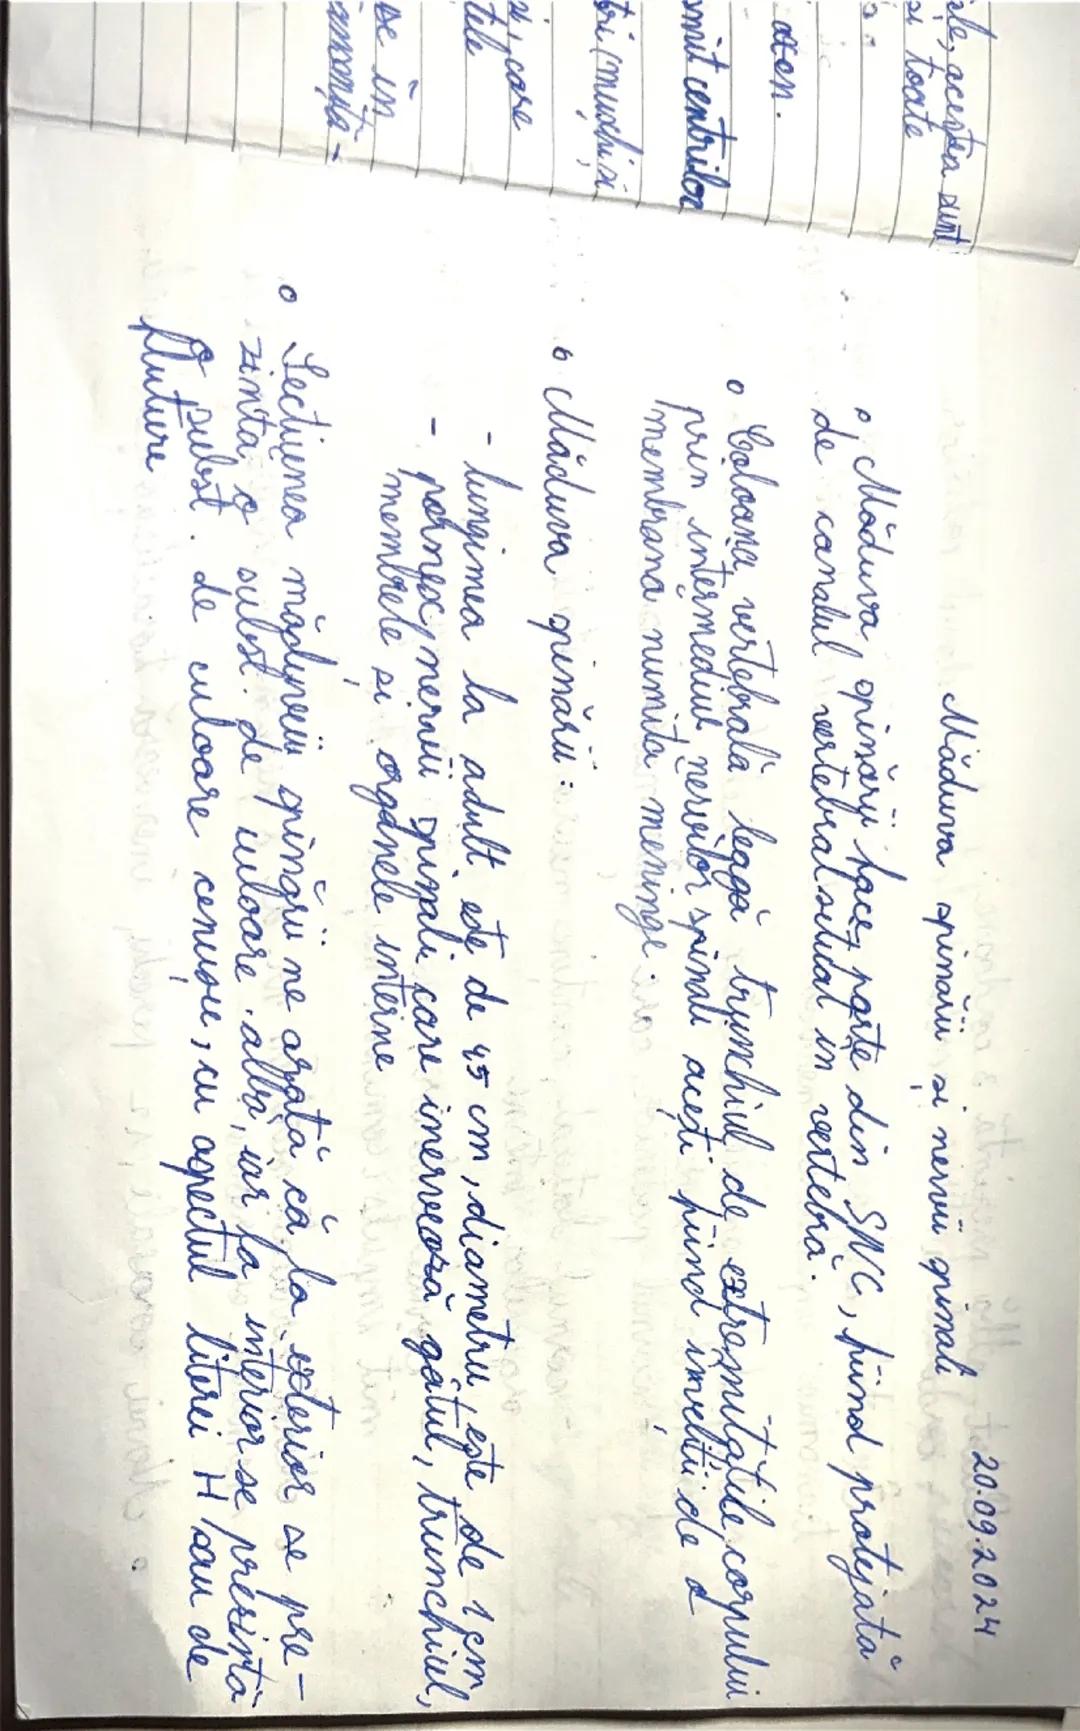 20.09.2024
Măduva spinării și nervii spinali
Măduva spinării face parte din SNC, fiind protejată
de canalul vertebral situat in vertebră.
Coloana vertebrală leagă trunchiul de extremitățile corpului
prin intermediul nervilor spinali acești fiind inveliți de o
membrana numita meninge.
Măduva spinării:
- lungimea la adult este de 45 cm, diametru este de 1 cm
- pornesc nervii spinali care inervează gâtul, trunchiul,
membrele și organele interine
Secțiunea măduvei spinării ne arată că la exterior se pre-
zinta o subst. de culoare alba, iar la interior se prezintă
o subst. de culoare cenușie, cu aspectul literei H sau de
fluture
acestea sunt
și toate
aten.
centrilor
mușchi și
care
se in